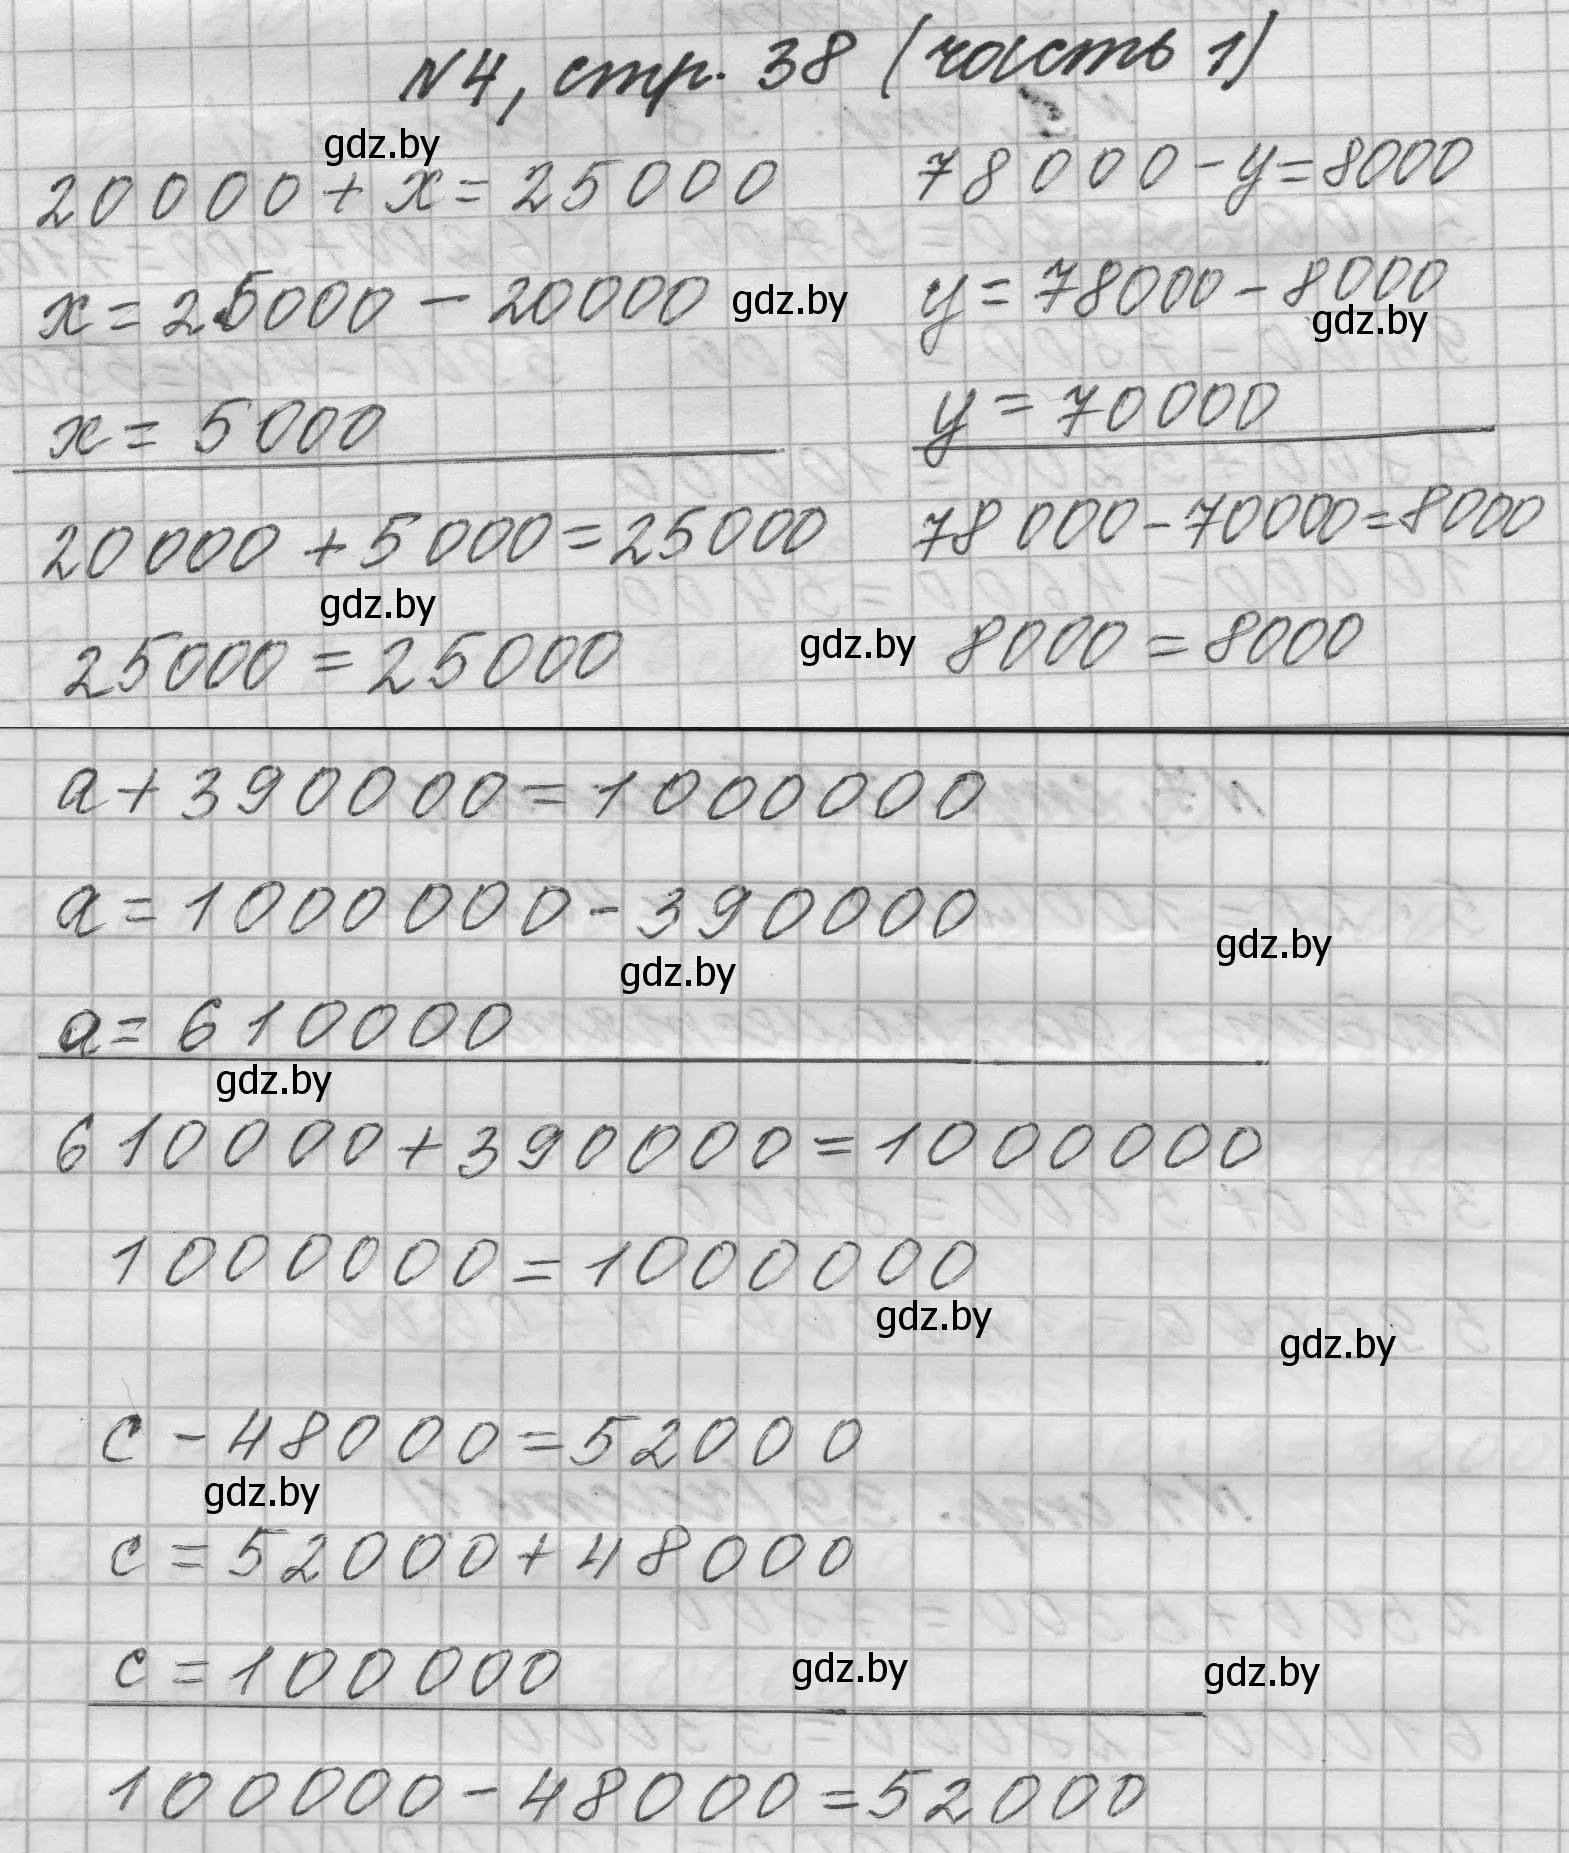 №4, стр. 38 (часть 1)
gdz.by
20000 + x = 25000
78000 - y = 8000
x = 25000 - 20000
gdz.by
y = 78000 - 8000
gdz.by
x = 5000
y = 70000
20000 + 5000 = 25000
78000 - 70000 = 8000
gdz.by
25000 = 25000
gdz.by
8000 = 8000
a + 390000 = 1000000
a = 1000000 - 390000
gdz.by
gdz.by
a = 610000
gdz.by
610000 + 390000 = 1000000
1000000 = 1000000
gdz.by
gdz.by
c - 48000 = 52000
gdz.by
c = 52000 + 48000
c = 100000
gdz.by
gdz.by
100000 - 48000 = 52000